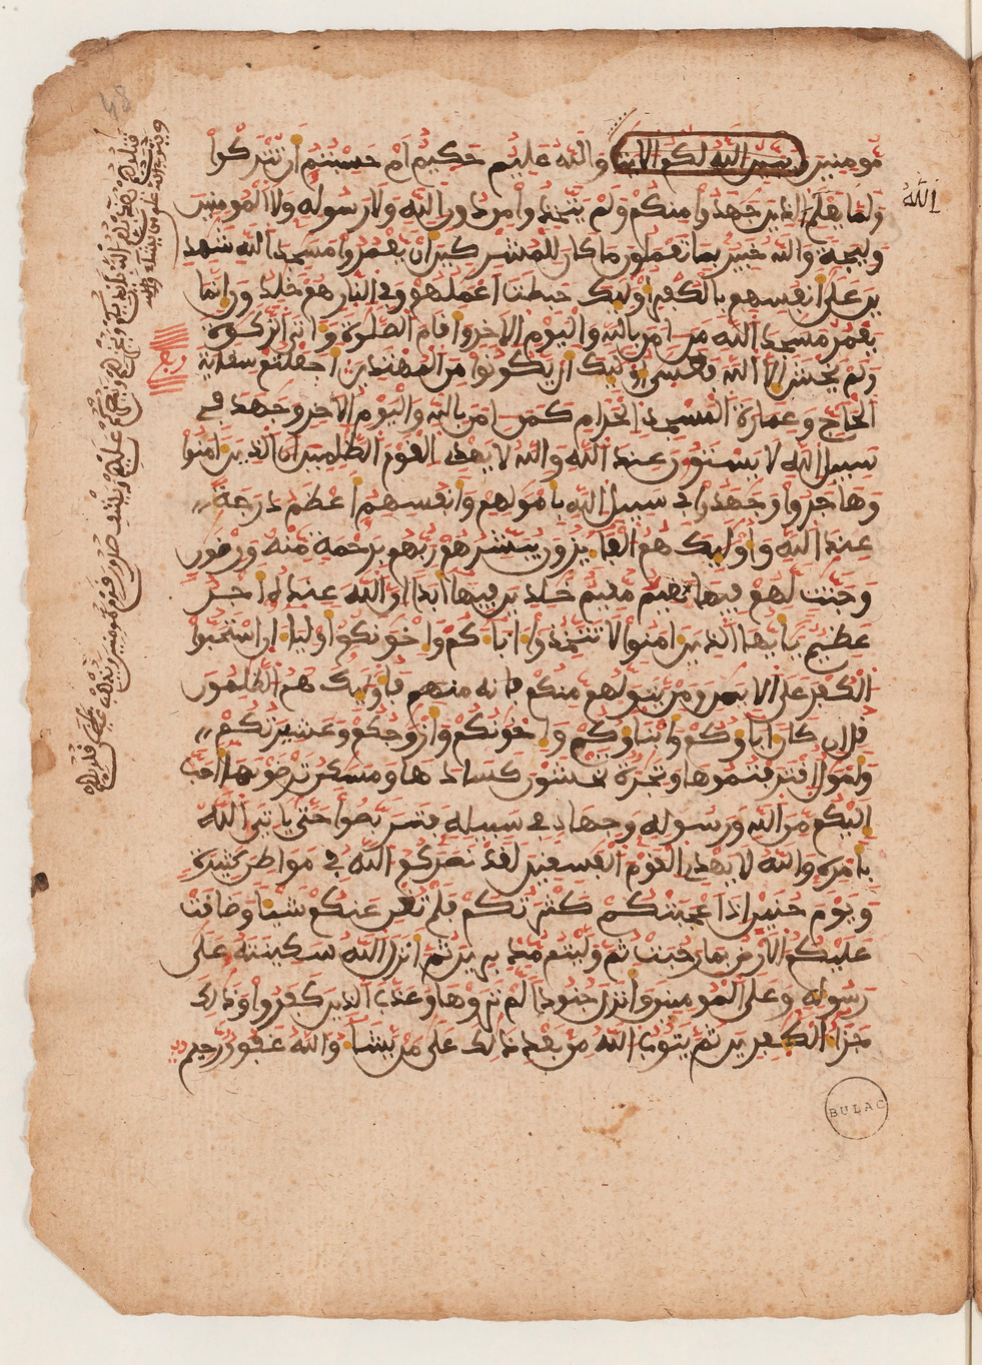 مومنين و يبين الله لكم الايت والله عليم حكيم ام حسبتم ان تتركوا
ولما يعلم الذين جهدوا منكم ولم يتخذوا من دون الله ولا رسوله ولا المومنين
الله
وليجة والله خبير بما تعملون ما كان للمشركين ان يعمروا مسجد الله شهد
ين على انفسهم بالكفر اوليك حبطت اعملهم وفي النار هم خلدون انما
يعمر مسجد الله من امن بالله واليوم الاخر واقام الصلوة واتى الزكوة
ولم يخش الا الله فعسى اوليك ان يكونوا من المهتدين اجعلتم سقاية
الحاج وعمارة المسجد الحرام كمن امن بالله واليوم الاخر وجهد في
سبيل الله لا يستوون عند الله والله لا يهدي القوم الظلمين الذين امنوا
وهاجروا وجهدوا في سبيل الله بامولهم وانفسهم اعظم درجة
عند الله واوليك هم الفايزون يبشرهم ربهم برحمة منه ورضون
وجنت لهم فيها نعيم مقيم خلدين فيها ابدا ان الله عنده اجر
عظيم يايها الذين امنوا لا تتخذوا اباكم واخونكم اوليا ان استحبوا
الكفر على الايمن ومن يتولهم منكم فانه منهم فاوليك هم الظلمون
قل ان كان اباوكم وابناوكم واخونكم وازوجكم وعشيرتكم
وامول اقترفتموها وتجرة تخشون كسادها ومسكن ترضونها احب
اليكم من الله ورسوله وجهاد في سبيله فتربصوا حتى ياتي الله
بامره والله لا يهدي القوم الفسقين لقد نصركم الله في مواطن كثيرة
ويوم حنين اذ اعجبتكم كثرتكم فلم تغن عنكم شيا وضاقت
عليكم الارض بما رحبت ثم وليتم مدبرين ثم انزل الله سكينته على
رسوله وعلى المومنين وانزل جنودا لم تروها وعذب الذين كفروا وذلك
جزاء الكفرين ثم يتوب الله من بعد ذالك على من يشا والله غفور رحيم
قتلوهم يعذبهم الله بايديكم ويخزهم وينصركم عليهم ويشف صدور قوم مومنين ويذهب غيظ قلوبهم
ويتوب الله على من يشاء والله
48
BULAC